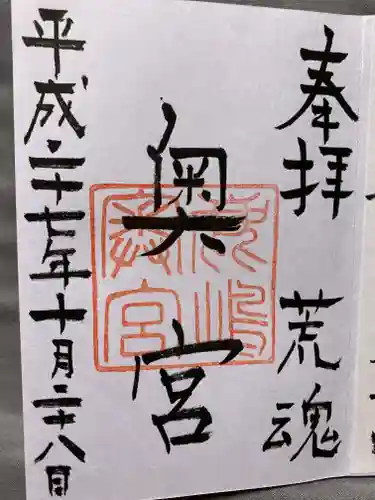 奉拝　荒魂
奥宮
鹿嶋奥宮
平成二十七年十月二十八日